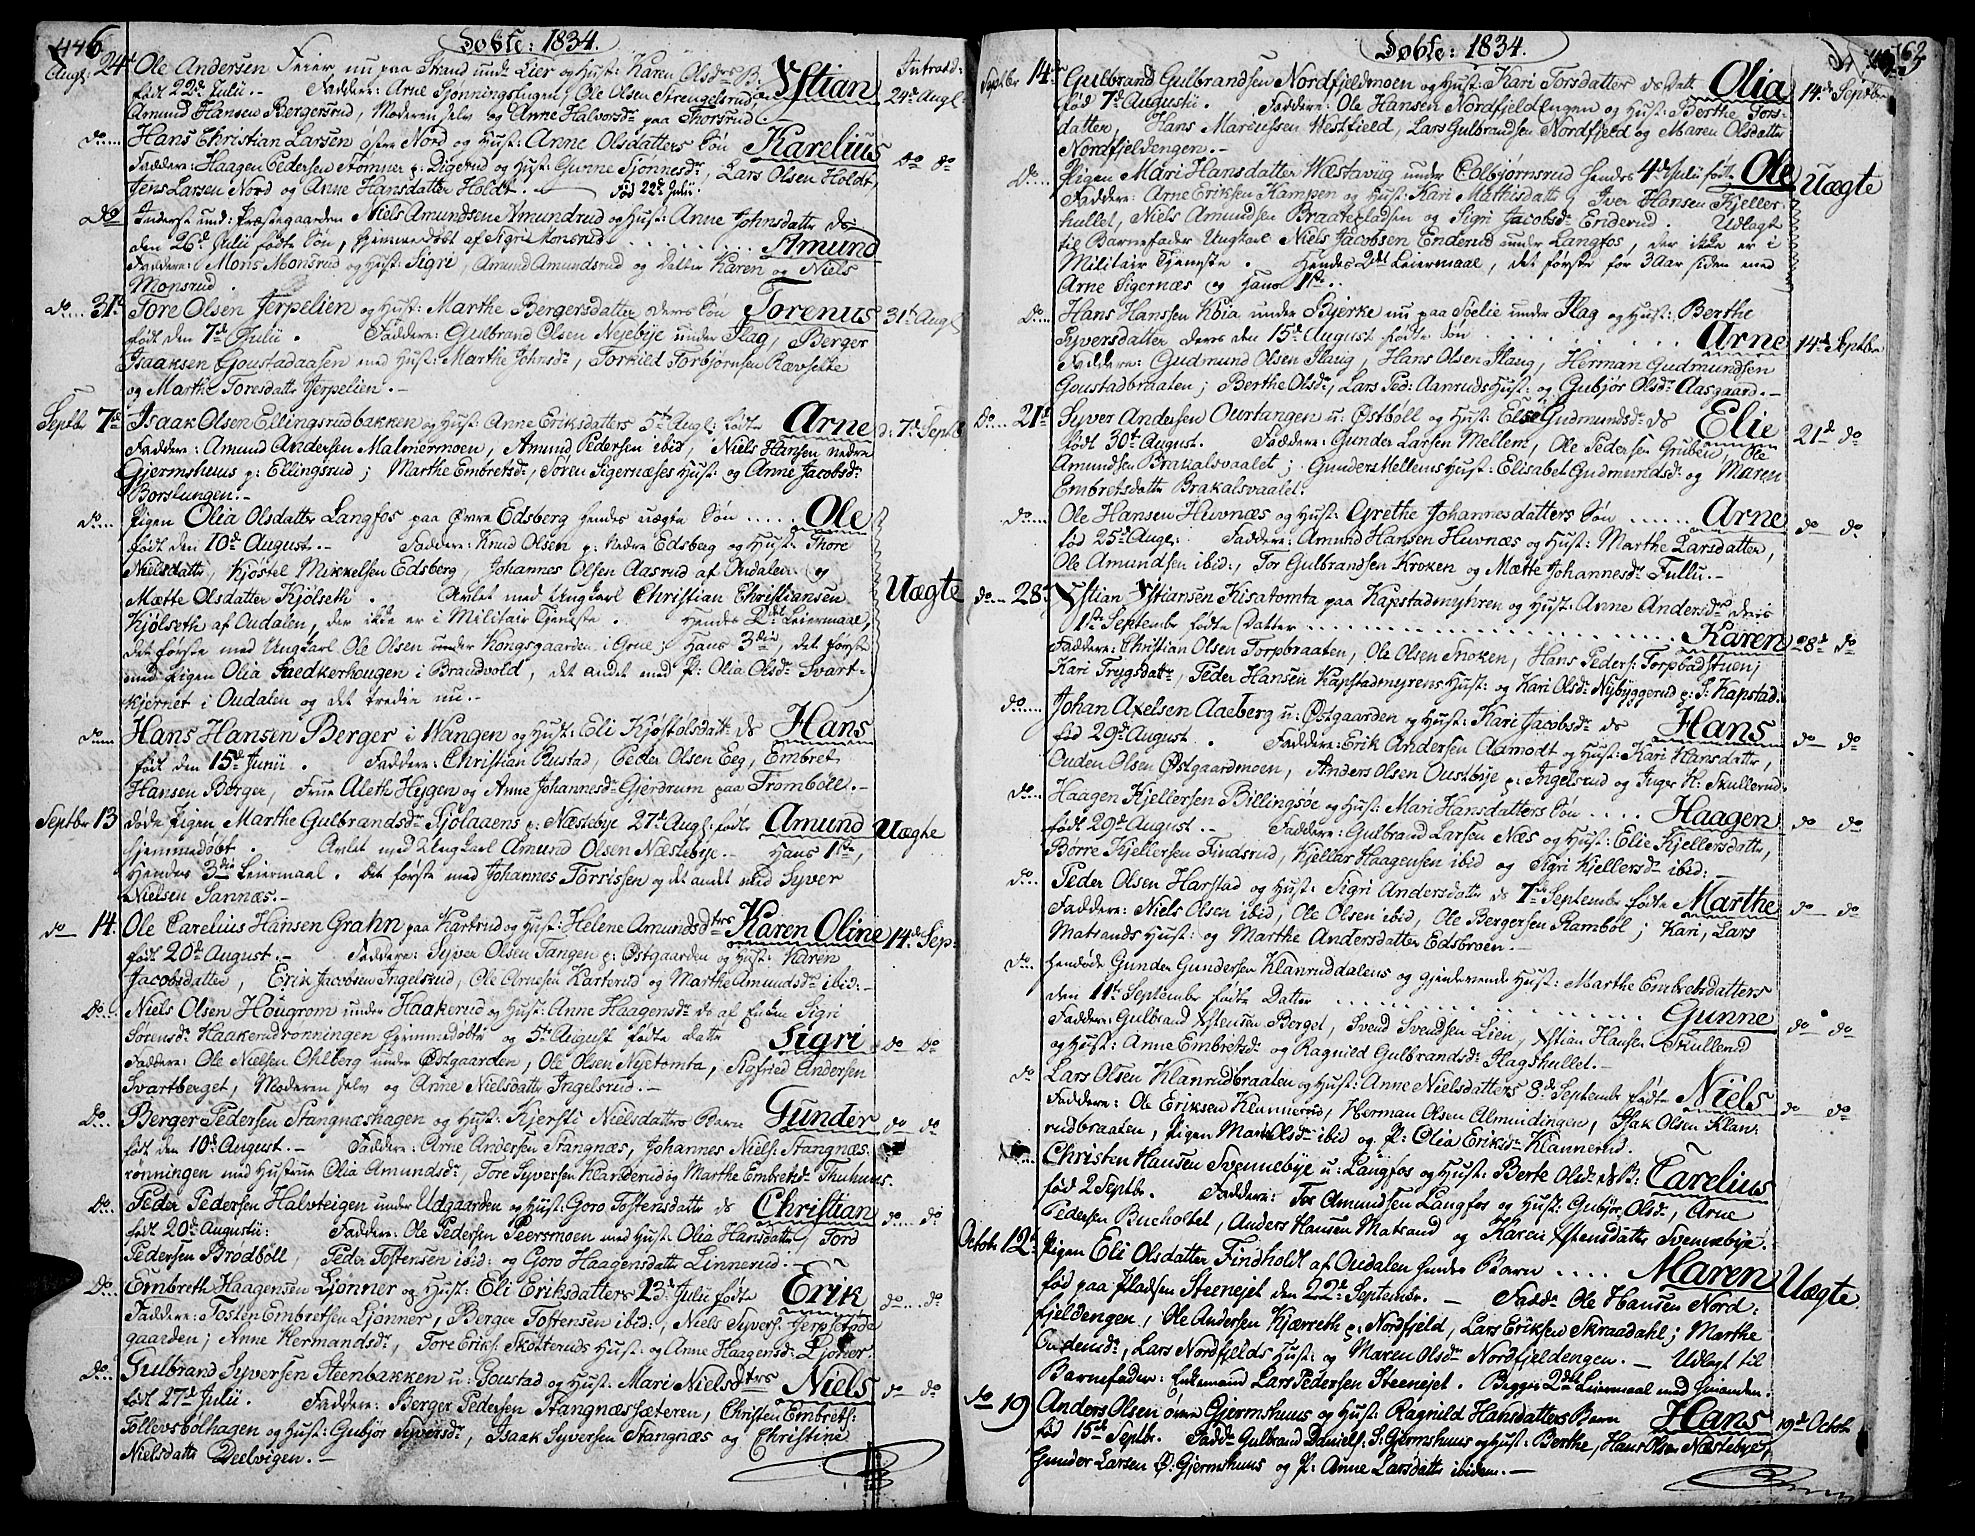 446
Døbte: 1834.
Augs: 24d Ole Andersen Feier nu paa Strand under Lier og Hust: Karen Olsdrs B. Ystian Introd:
født 22de Julii. Faddere: Arne Ole Olsen Strengelsrud, 24d Augl
Amund Hansen Bergersrud, Moderen selv og Anne Halvorsdr paa Thorsrud.
do Hans Christian Larsen øfre Nord og Hust: Anne Olsdatters Søn Karelius do do
Faddere: Haagen Pedersen Stomner p: Digerud og Hust: Gunne Tjønnesdr, Lars Olsen Holdt,
Jens Larsen Nord og Anne Hansdatter Holdt. Fød 22de Julii.
Do Inderst und: Præstegaarden Niels Amundsen Amundrud og Hust: Anne Johnsdatter ds
den 26d Julii fødte Søn, hjemmedøbt af Sigri Monsrud Amund
Faddere: Mons Monsrud og Hust: Sigri, Amund Amundsrud og Datter Karen og Niels
Monsrud.
do 31d Tore Olsen Jerpelien og Hust: Marthe Bergersdatter deres Søn Torenus 31d Augl
født den 7d Julii. Faddere: Gulbrand Olsen Nyebye under Flag, Berger
Isaaksen Goustadaasen med Hust: Marthe Johnsdr, Torkild Torbjørnsen Rævholte
og Marthe Toresdatter Jerpelien.
Septbr 7d Isaak Olsen Ellingsrudbakken og Hust: Anne Eriksdatters 5te Augl: fødte Arne d: 7d Septb
Faddere: Amund Andersen Malmermoen, Amund Pedersen ibid, Niels Hansen nedre
Gjermshuus p: Ellingsrud; Marthe Embretsdr, Søren Sigernæses Hust: og Anne Jacobsdr
Borslungen.
do Pigen Olia Olsdatter Langfos paa Øvre Edsberg hendes uægte Søn Ole
født den 10d August. Faddere: Knud Olsen p: Nedre Edsberg og Hust: Thore
Nielsdatter, Kjøstel Mikkelsen Edsberg, Johannes Olsen Aasrud af Oudalen og
Mætte Olsdatter Kjølseth. Avlet med Ungkarl Christian Christiansen Uægte
Kjølseth af Oudalen, der ikke er i Militair Tjeneste. Hendes 2det Leiermaal,
det første med Ungkarl Ole Olsen under Kongsgaarden i Grue; Hans 3die, det første
med Pigen Olia Sædkerhougen i Brandvold, det andet med P: Olia Olsdr Svart-
kjernet i Oudalen og det tredie nu.
do Hans Hansen Berger i Wangen og Hust: Eli Kjøstolsdatter ds Hans
født den 15d Junii. Faddere: Christian Rustad, Peder Olsen Eeg, Embret
Hansen Berger, Frue Aleth Heggen og Anne Johannesdr Gjerdrum paa Trombøle.
Septbr 13 døde Pigen Marthe Gulbrandsdr Sjølaaens p: Næstebye 27d Augl: fødte Amund Uægte
hjemmedøbt. Avlet med Ungkarl Amund Olsen Næstebye. Hans 1ste,
Hendes 3die Leiermaal. Det første med Johannes Torrissen og det andet med Syver
Nielsen Sannæs.
do 14. Ole Carelius Hansen Grahn paa Kartrud og Hust: Helene Amundsdtrs Karen Oline 14d Sep:
født 20d August. Faddere: Syver Olsen Tangen p: Østgaarden og Hust: Karen
Jacobsdatter, Erik Jacobsen Ingelsrud, Ole Arnesen Karterud og Marthe Amundsdr ibid:
do. Niels Olsen Hougrom under Haakerud og Hust: Anne Haagensdr ds af Enken Sigri
Sørensdr Haakerudrønningen hjemmedøbte og 5te August fødte Datter Sigri do do
Faddere: Ole Nielsen Ohlberg under Østgaarden, Ole Olsen Nyetomta, Sigfried Andersen
Svartberget, Moderen selv og Anne Nielsdatter Ingelsrud.
Do. Berger Pedersen Stangnæshagen og Hust: Kjersti Nielsdatters Barn Gunder do do
født den 10d August. Faddere: Arne Andersen Stangnæs, Johannes Niels: Stangnæs-
rønningen med Hustrue Olia Amundsdr, Tore Syversen Klarderud og Marthe Embretsdr Thuhuus.
Do. Peder Pedersen Halvteigen under Udgaarden og Hust: Goro Tostensdatter ds Christian do do
født 20d Augustii: Faddere: Ole Pedersen Peersmoen med Hust: Olia Hansdatter, Tord
Pedersen Brodbøll Peder Tostensen ibid: og Goro Haagensdatter Linnerud.
Do. Embreth Haagensen Ljønner og Hust: Eli Eriksdatters 23d Julii fødte Erik do do
Faddere: Tosten Embretsen Ljønner, Berger Tostensen ibid:, Niels Syvers: Jerpset
gaarden; Anne Hermandsdr, Tore Eriks: Skotteruds Hust: og Anne Haagensdr Ljønner.
do. Gulbrand Syversen Steenbakken u: Goustad og Hust: Mari Nielsdtrs Niels do do
født 27d Julii. Faddere: Berger Pedersen Stangnæssæteren, Christen Embrets:
Tollevsbølhagen og Hust: Gubjør Syversdr, Isaak Syversen Stangnæs og Christine
Nielsdatter Deelvigen.
Døbte: 1834.
163
Septbr 14d Gulbrand Gulbrandsen Nordfjeldmoen og Hust: Kari Torsdatter ds Datter Olia 14d Septbr
fød 7d Augustii. Faddere: Ole Hansen Nordfjeldengen og Hust: Berthe Tors-
datter, Hans Mariussen Westfield, Lars Gulbrandsen Nordfjeld og Maren Olsdatter
Nordfjeldengen.
Do. Pigen Mari Hansdatter Wæstavug under Colbjørnsrud hendes 4d Julii fødte Ole Uægte
Faddere: Arne Eriksen Kampen og Hust: Kari Mathisdatter, Iver Hansen Kjelder-
hullet, Niels Amundsen Braatepladsen og Sigri Jacobsdr Enderud. Udlagt
til Barnefader Ungkarl Niels Jacobsen Enderud under Langfos, der ikke er i
Militair Tjeneste. Hendes 2det Leiermaal, det første for 3 Aar siden med
Arne Sigernæs og hans 1ste.
Do. Hans Hanssen Kbia under Bjerke nu paa Soelie under Flag og Hust: Berthe
Syversdatter deres den 15d August fødte Søn Arne 14d Septbr
Faddere: Gudmund Olsen Flaug, Hans Olsen Flaug, Herman Gudmundsen
Goustadbraaten; Berthe Olsdr, Lars Ped: Aanruds Hust: og Gubjør Olsdr Aasgaard.
Do. 21d Syver Andersen Ourtangen u: Østbøll og Hust: Else Gudmundsdr ds Elie 21d do
født 30d August. Faddere: Gunder Larsen Mellem, Ole Pedersen Gruben, Ole
Amundsen Brakalsvaalet; Gunders Mellems Hust: Elisabet Gudmundsdr og Maren
Embretsdatter Brakalsvaalet.
do. Ole Hansen Huvnæs og Hust: Grethe Johannesdatters Søn Arne do do
fød 25d Augl: Faddere: Amund Hansen Huvnæs og Hust: Marthe Larsdatter,
Ole Amundsen ibid:, Tor Gulbrandsen Kroken og Mætte Johannesdr Fullu.
do 28d Ystian Ystiansen Kisatomta paa Kapstadmyhren og Hust: Anne Andersdr deres
1ste Septembr fødte Datter Karen 28d do
Faddere: Christian Olsen Torpbraaten, Ole Olsen Snoken, Hans Peders: Torpbadstuen,
Kari Trygsdatr, Peder Hansen Kapstadmyrens Hust: og Kari Olsdr Nybyggerud p: S: Kapstad
do. Johan Axelsen Aaeberg u: Østgaarden og Hust: Kari Jacobsdr ds Hans do do
fød 29d August. Faddere: Erik Andersen Aamodt og Hust: Kari Hansdatter,
Ouden Olsen Østgaardmoen, Anders Olsen Oustbye p: Ingelsrud og Inger H: Skullerud.
do. Haagen Kjellersen Billingsøe og Hust: Mari Hansdatters Søn Haagen do do
født 29d August. Faddere: Gulbrand Larsen Næs og Hust: Elie Kjellersdatter,
Børre Kjellersen Findsrud, Kjellar Haagensen ibid og Sigri Kjellersdr ibid:
do. Peder Olsen Harstad og Hust: Sigri Andersdatter ds 7d Septembr fødte Marthe do do
Faddere: Niels Olsen ibid, Ole Olsen ibid, Ole Bergersen Rambøl; Kari, Lars
Matrands Hust: og Marthe Andersdatter Edsbroen.
do. Hendøde Gunder Gundersen Klanruddalens og gjenlevende Hust: Marthe Embretsdatters
den 11te Septembr fødte Datter Gunne do do
Faddere: Gulbrand Ystensen Berget, Svend Svendsen Lien, Ystian Hansen Skullerud
og Hust: Anne Embretsdr og Ragnild Gulbrandsdr Flagshullet.
do Lars Olsen Klanrudbraaten og Hust: Anne Nielsdatters 8d Septembr fødte Niels do do
Faddere: Ole Eriksen Klannerud, Herman Olsen Almindingen, Isak Olsen Klan-
rudbraaten, Pigen Mari Olsdr ibid og P: Olia Eriksdr Klannerud.
Christen Hansen Svennebye u: Langfos og Hust: Berte Olsdr ds B: Carelius
fød 2 Septbr. Faddere: Tor Amundsen Langfos og Hust: Gubjør Olsdr, Arne
Pedersen Bueholtet, Anders Hansen Matrand og Karen Ystensdatter Svennebye.
Octobr 12d Pigen Eli Olsdatter Findholdt af Oudalen hendes Barn Maren Uægte
fød paa Pladsen Steenejet den 22d Septembr. Fadd: Ole Hansen Nord-
fjeldengen, Ole Andersen Kjærreth p: Nordfjeld, Lars Eriksen Skraadahl; Marthe
Oudensdr, Lars Nordfjelds Hust: og Maren Olsdr Nordfjeldengen. Udlagt til
Barnefader: Enkemand Lars Pedersen Steenejet. Begges 2det Leiermaal med hinanden.
do 19 Anders Olsen øvre Gjermshuus og Hust: Ragnild Hansdatters Barn Hans 19d Octobr
fød 15d Septbr. Fadd: Gulbrand Daniels: S: Gjermshuus og Hust: Berthe, Hans Olsen Næstebye,
Gunder Larsen Ø: Gjermshuus og P: Anne Larsdatter ibidem.